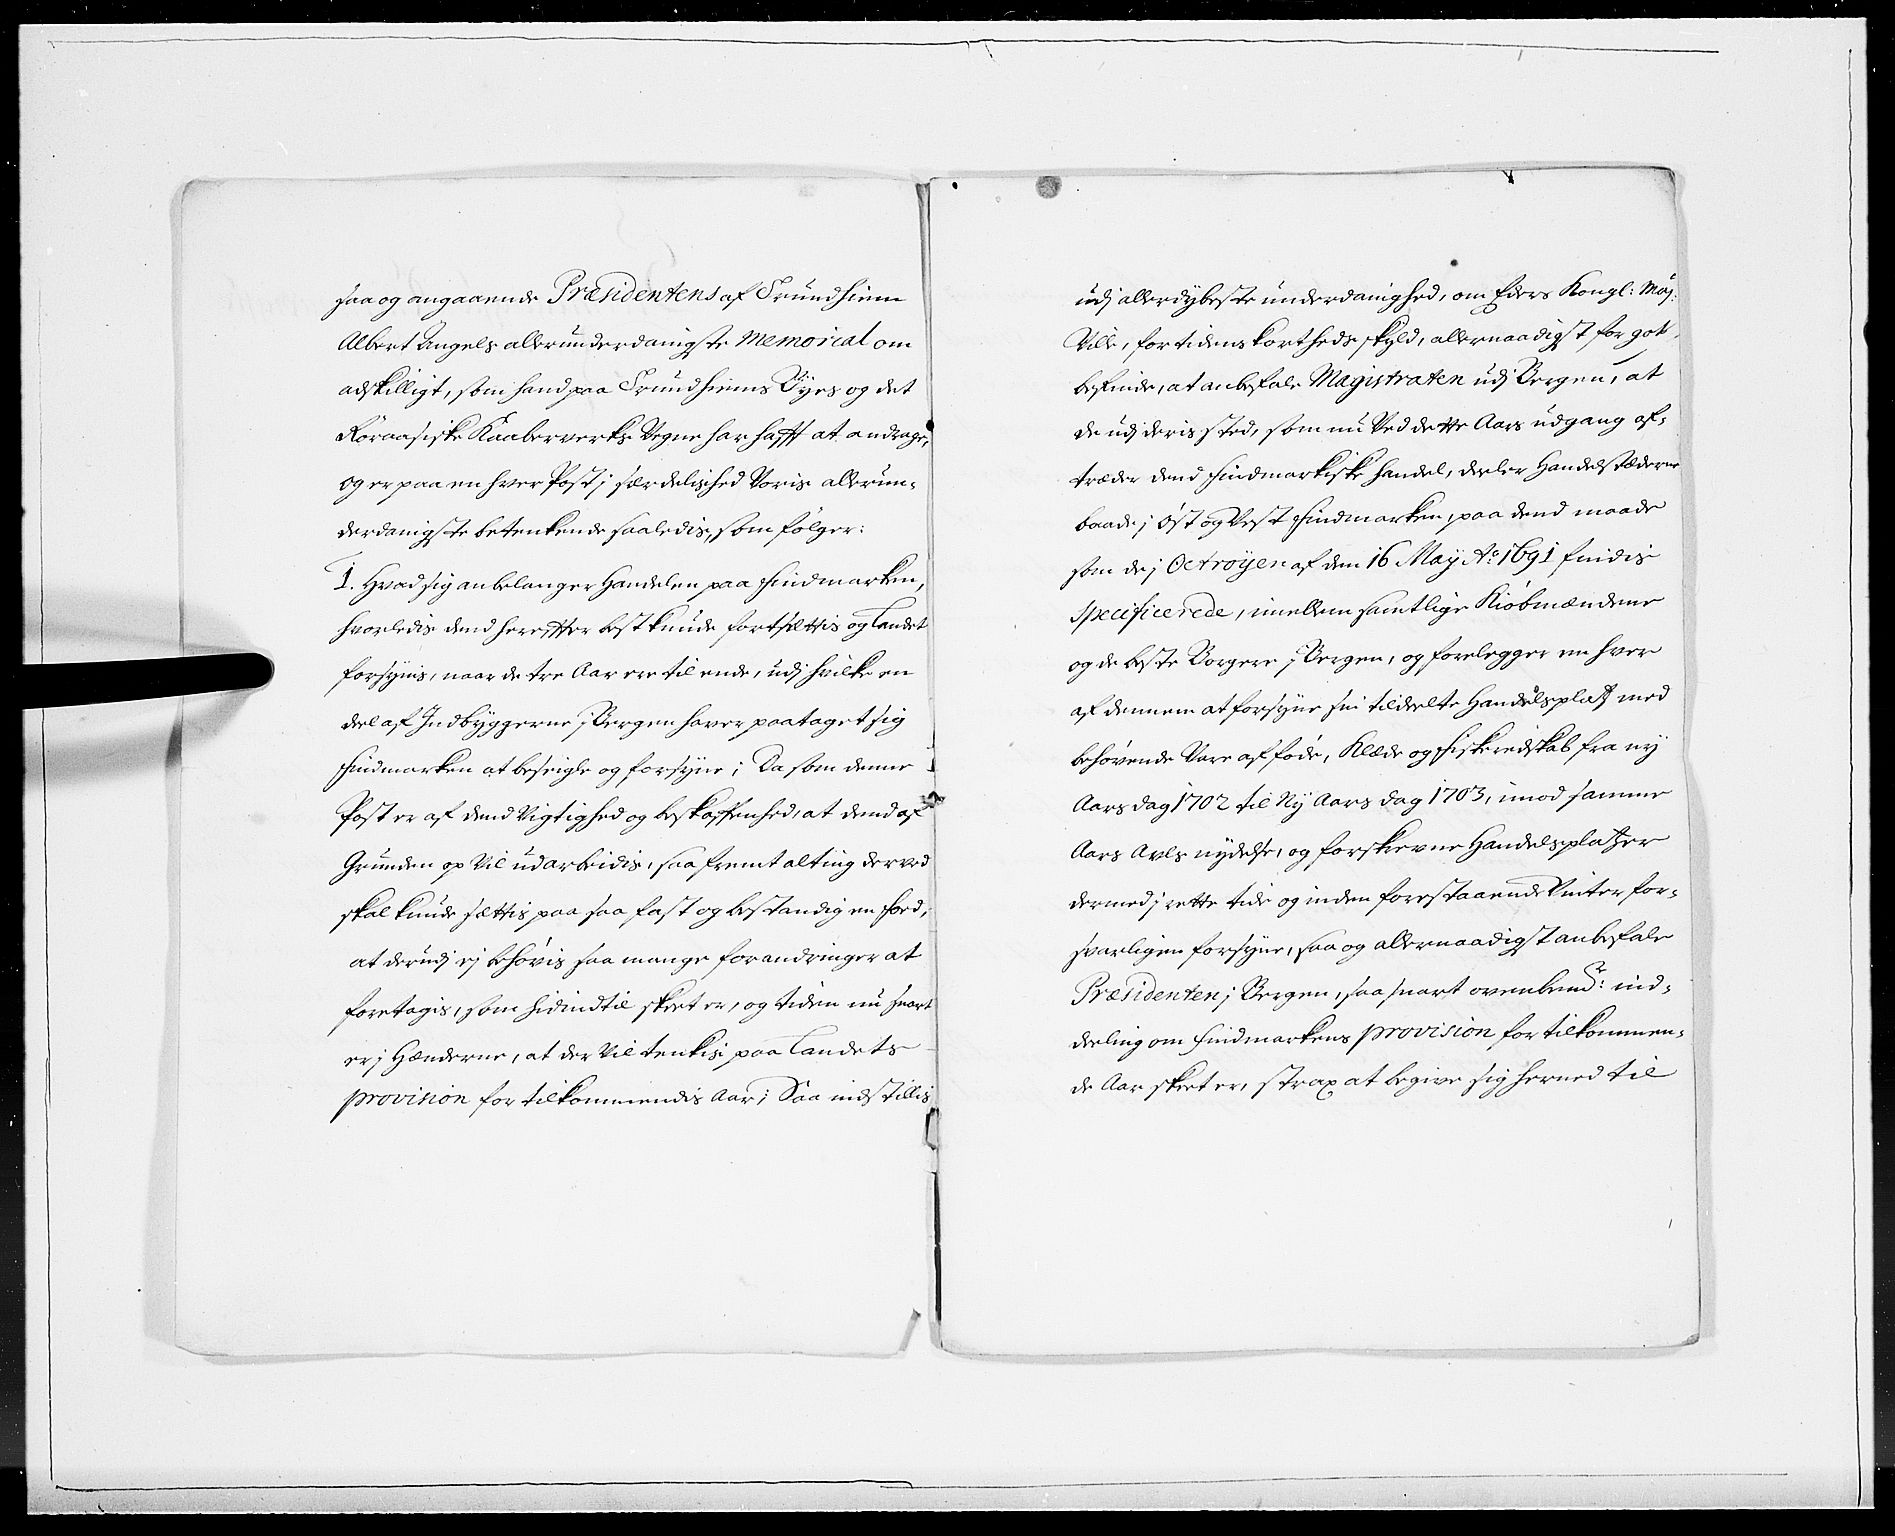 saa og angaaende Præsidentens af Trundhiem
Albert Angels allerunderdanigste Memorial om
adskilligt, som hand paa Trundhiems Byes og det
Röraasiske Kaaberverks Vegne har hafft at andrage,
og er paa en hver Post j særdelished Voris allerun-
derdanigste betenkende saaledis, som følger:
1. Hvad sig anbelanger Handelen paa Findmarken,
hvorledis dend herefter best kunde fortsættis og Landet
forsynis, naar de tre Aar ere til ende, udj hvilke en
deel af Indbyggerne j Bergen haver paataget sig
Findmarken at beseigle og forsyne; Da som denne
Post er af dend Vigtighed og beskaffenhed, at dend af
Grunden op vil udarbeidis, saafremt alting derved
skal kunde settis paa saa fast og bestandig en Foed,
at derudj ej behövis saa mange forandringer at
foretagis, som hidindtil skeet er, og tiden nu snart
er j Hænderne, at der vil tenkis paa Landets
provision for tilkommendis Aar; Saa indstillis
udj allerdybeste underdanighed, om Eders Kongl: Maj:
Ville, for tidens kortheds skyld, allernaadigst for got
befinde, at anbefale Magistraten udj Bergen, at
de udj deris sted, som nu Ved dette Aars udgang af-
træder dend Findmarkiske Handel, deeler Handelstæderne
baade j Øst og Vest Findmarken, paa dend maade
som de j Octroyen af dem 16 Maÿ Ao 1691 findis
specificerede, imellem samtlige Kiöbmændene
og de beste Borgere j Bergen, og forelegger en hver
af dennem at forsyne sin tildeelte Handelsplatz med
behøvende Vare af föde, Klæde og Fiskeredskab fra ny
Aars dag 1702 til Ny Aars dag 1703, imod samme
Aars Avls nydelse, og forskrevne Handelsplatzer
dermed j rette tide og inden forestaaende Vinter for-
svarligen forsyne, saa og allernaadigst anbefale
Præsidenten j Bergen, saa snart ovenbemte: ind-
deeling om Findmarkens provision for tilkommen-
de Aar skeet er, strax at begive sig herned til